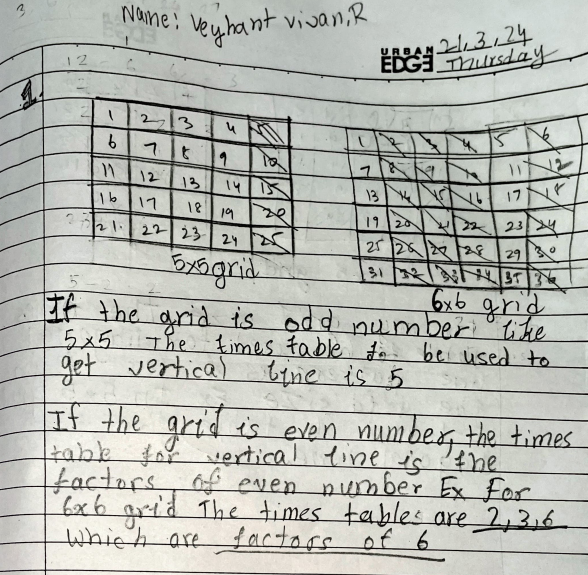 3
Name: Veyhant vivan.R
URBAN EDGE 21,3,24
Thursday
1.
1 2 3 4 5
6 7 8 9 10
11 12 13 14 15
16 17 18 19 20
21 22 23 24 25
5x5 grid
1 2 3 4 5 6
7 8 9 10 11 12
13 14 15 16 17 18
19 20 21 22 23 24
25 26 27 28 29 30
31 32 33 34 35 36
6x6 grid
If the grid is odd number like
5x5 The times table to be used to
get vertical line is 5
If the grid is even number, the times
table for vertical line is the
factors of even number Ex For
6x6 grid The times tables are 2,3,6
which are factors of 6